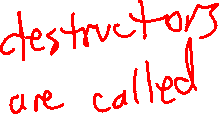 destructors
are called